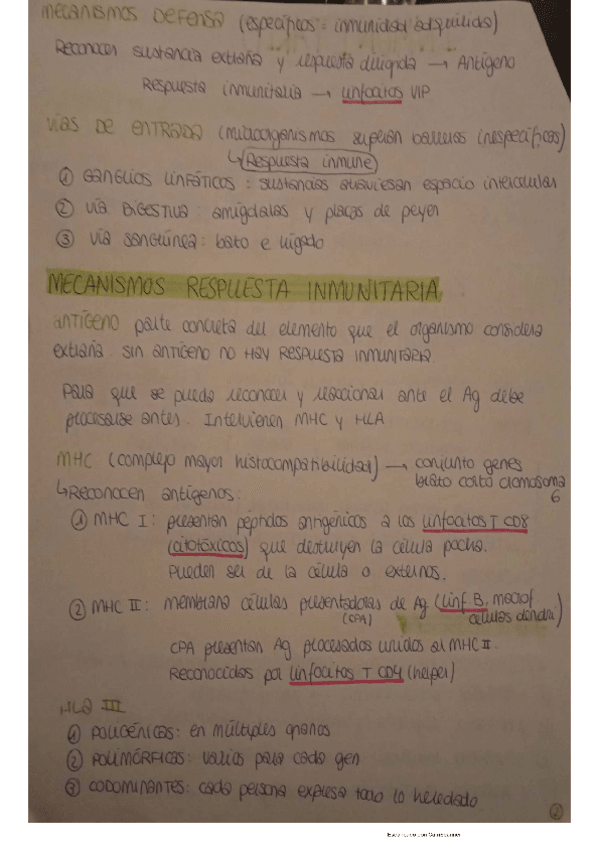 MECANISMOS DEFENSA (específicos = inmunidad adquirida)
Reconocen sustancia extraña y respuesta dirigida → Antígeno
Respuesta inmunitaria → linfocitos VIP
VÍAS DE ENTRADA (microorganismos superan barreras inespecíficas)
↳ Respuesta inmune
① GANGLIOS LINFÁTICOS : sustancias atraviesan espacio intercelular
② VÍA DIGESTIVA : amígdalas y placas de peyer
③ VÍA SANGUÍNEA : bazo e hígado
MECANISMOS RESPUESTA INMUNITARIA
ANTÍGENO parte concreta del elemento que el organismo considera
extraña. SIN ANTÍGENO NO HAY RESPUESTA INMUNITARIA.
Para que se pueda reconocer y reaccionar ante el Ag debe
procesarse antes. Intervienen MHC y HLA
MHC (complejo mayor histocompatibilidad) → conjunto genes
brazo corto cromosoma
6
↳ Reconocen antígenos :
① MHC I : presentan péptidos antigénicos a los linfocitos T CD8
(citotóxicos) que destruyen la célula pocha.
Pueden ser de la célula o externos.
② MHC II : membrana células presentadoras de Ag (linf B, macrof
(CPA) células dendri)
CPA presentan Ag procesados unidos al MHC II.
Reconocidos por linfocitos T CD4 (helper)
HLA III
① POLIGÉNICAS : en múltiples
② POLIMÓRFICAS : varios para cada gen
③ CODOMINANTES : cada persona expresa todo lo heredado
②
Escaneado con CamScanner